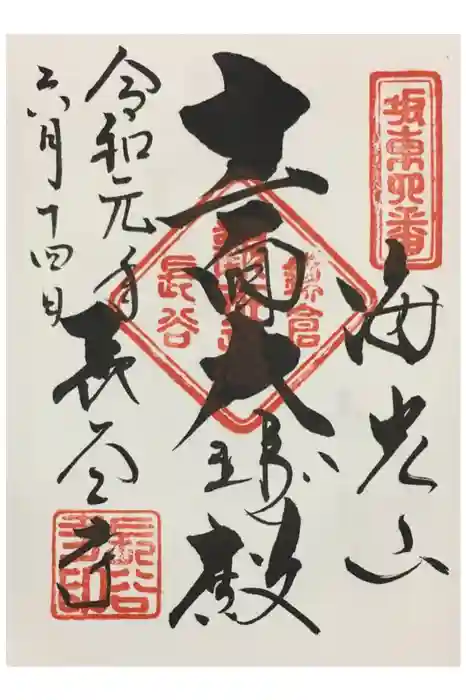 坂東四番
海光山
十一面大悲殿
鎌倉
長谷
令和元年
六月十四日
長谷寺
長谷
寺印